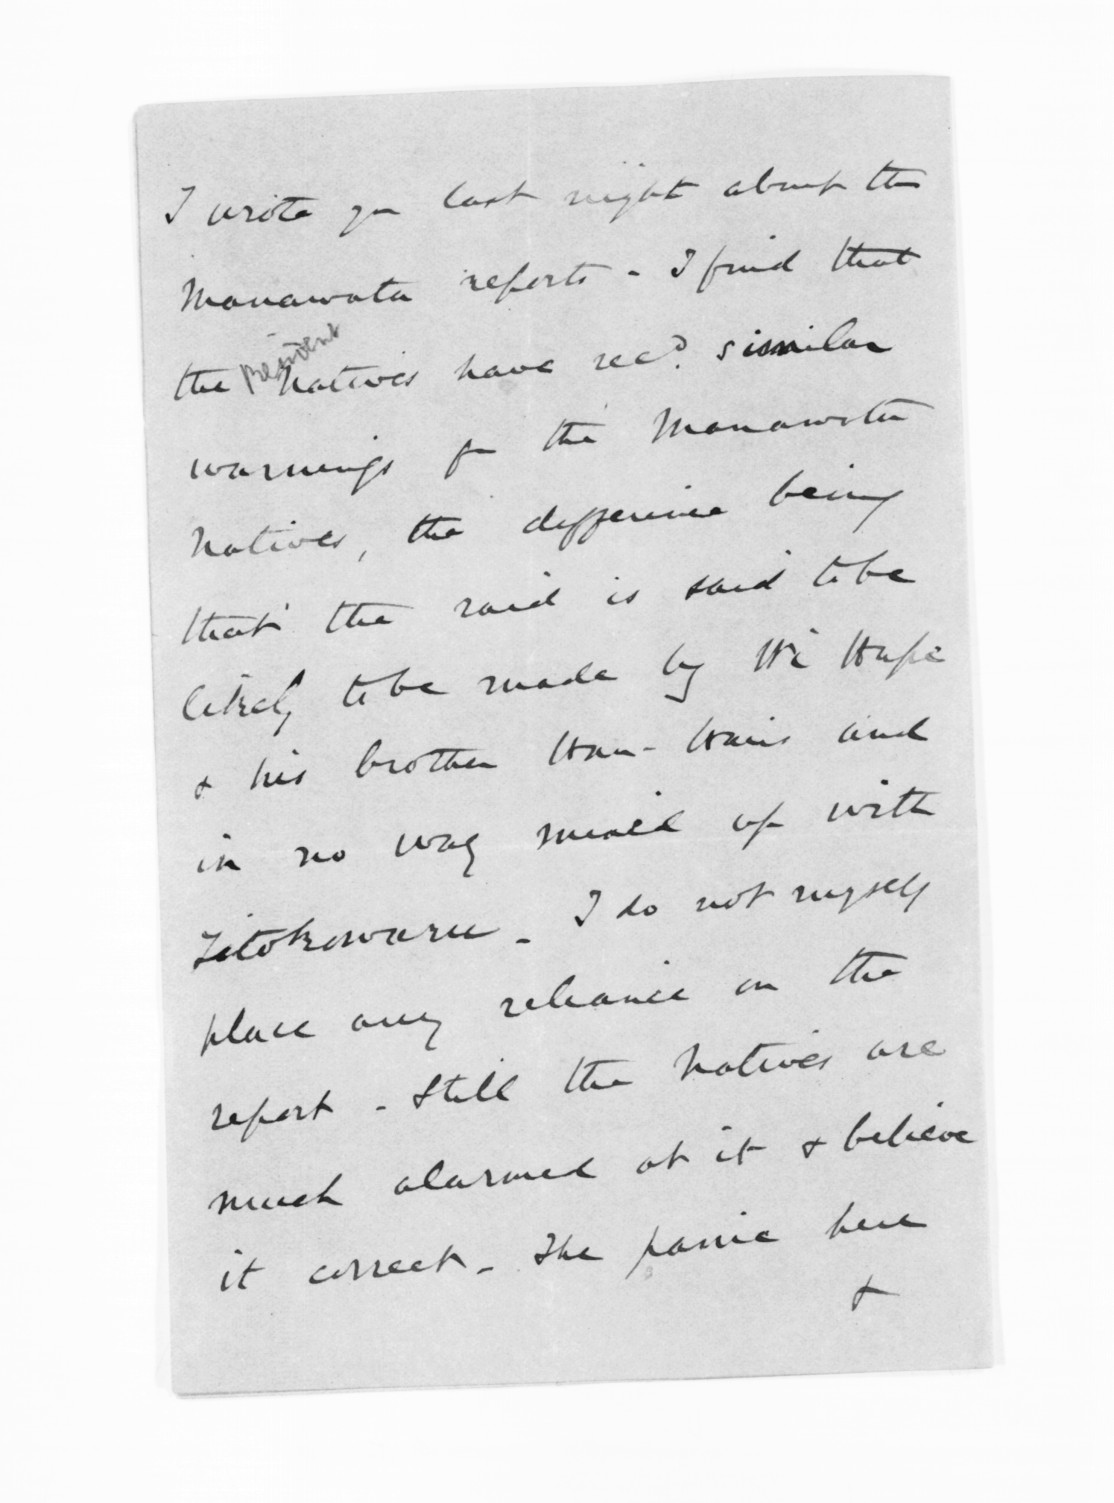 I wrote you last night about the
Manawatu reports - I find that
the resident Natives have recd. similar
warnings fm the Manawatu
Natives, the difference being
that the raid is said to be
likely to be made by Wi Hape
& his brother Hau-Haus and
in no way mixed up with
Titokowaru - I do not myself
place any reliance on the
report - Still the Natives are
much alarmed at it & believe
it correct - The panic here
&